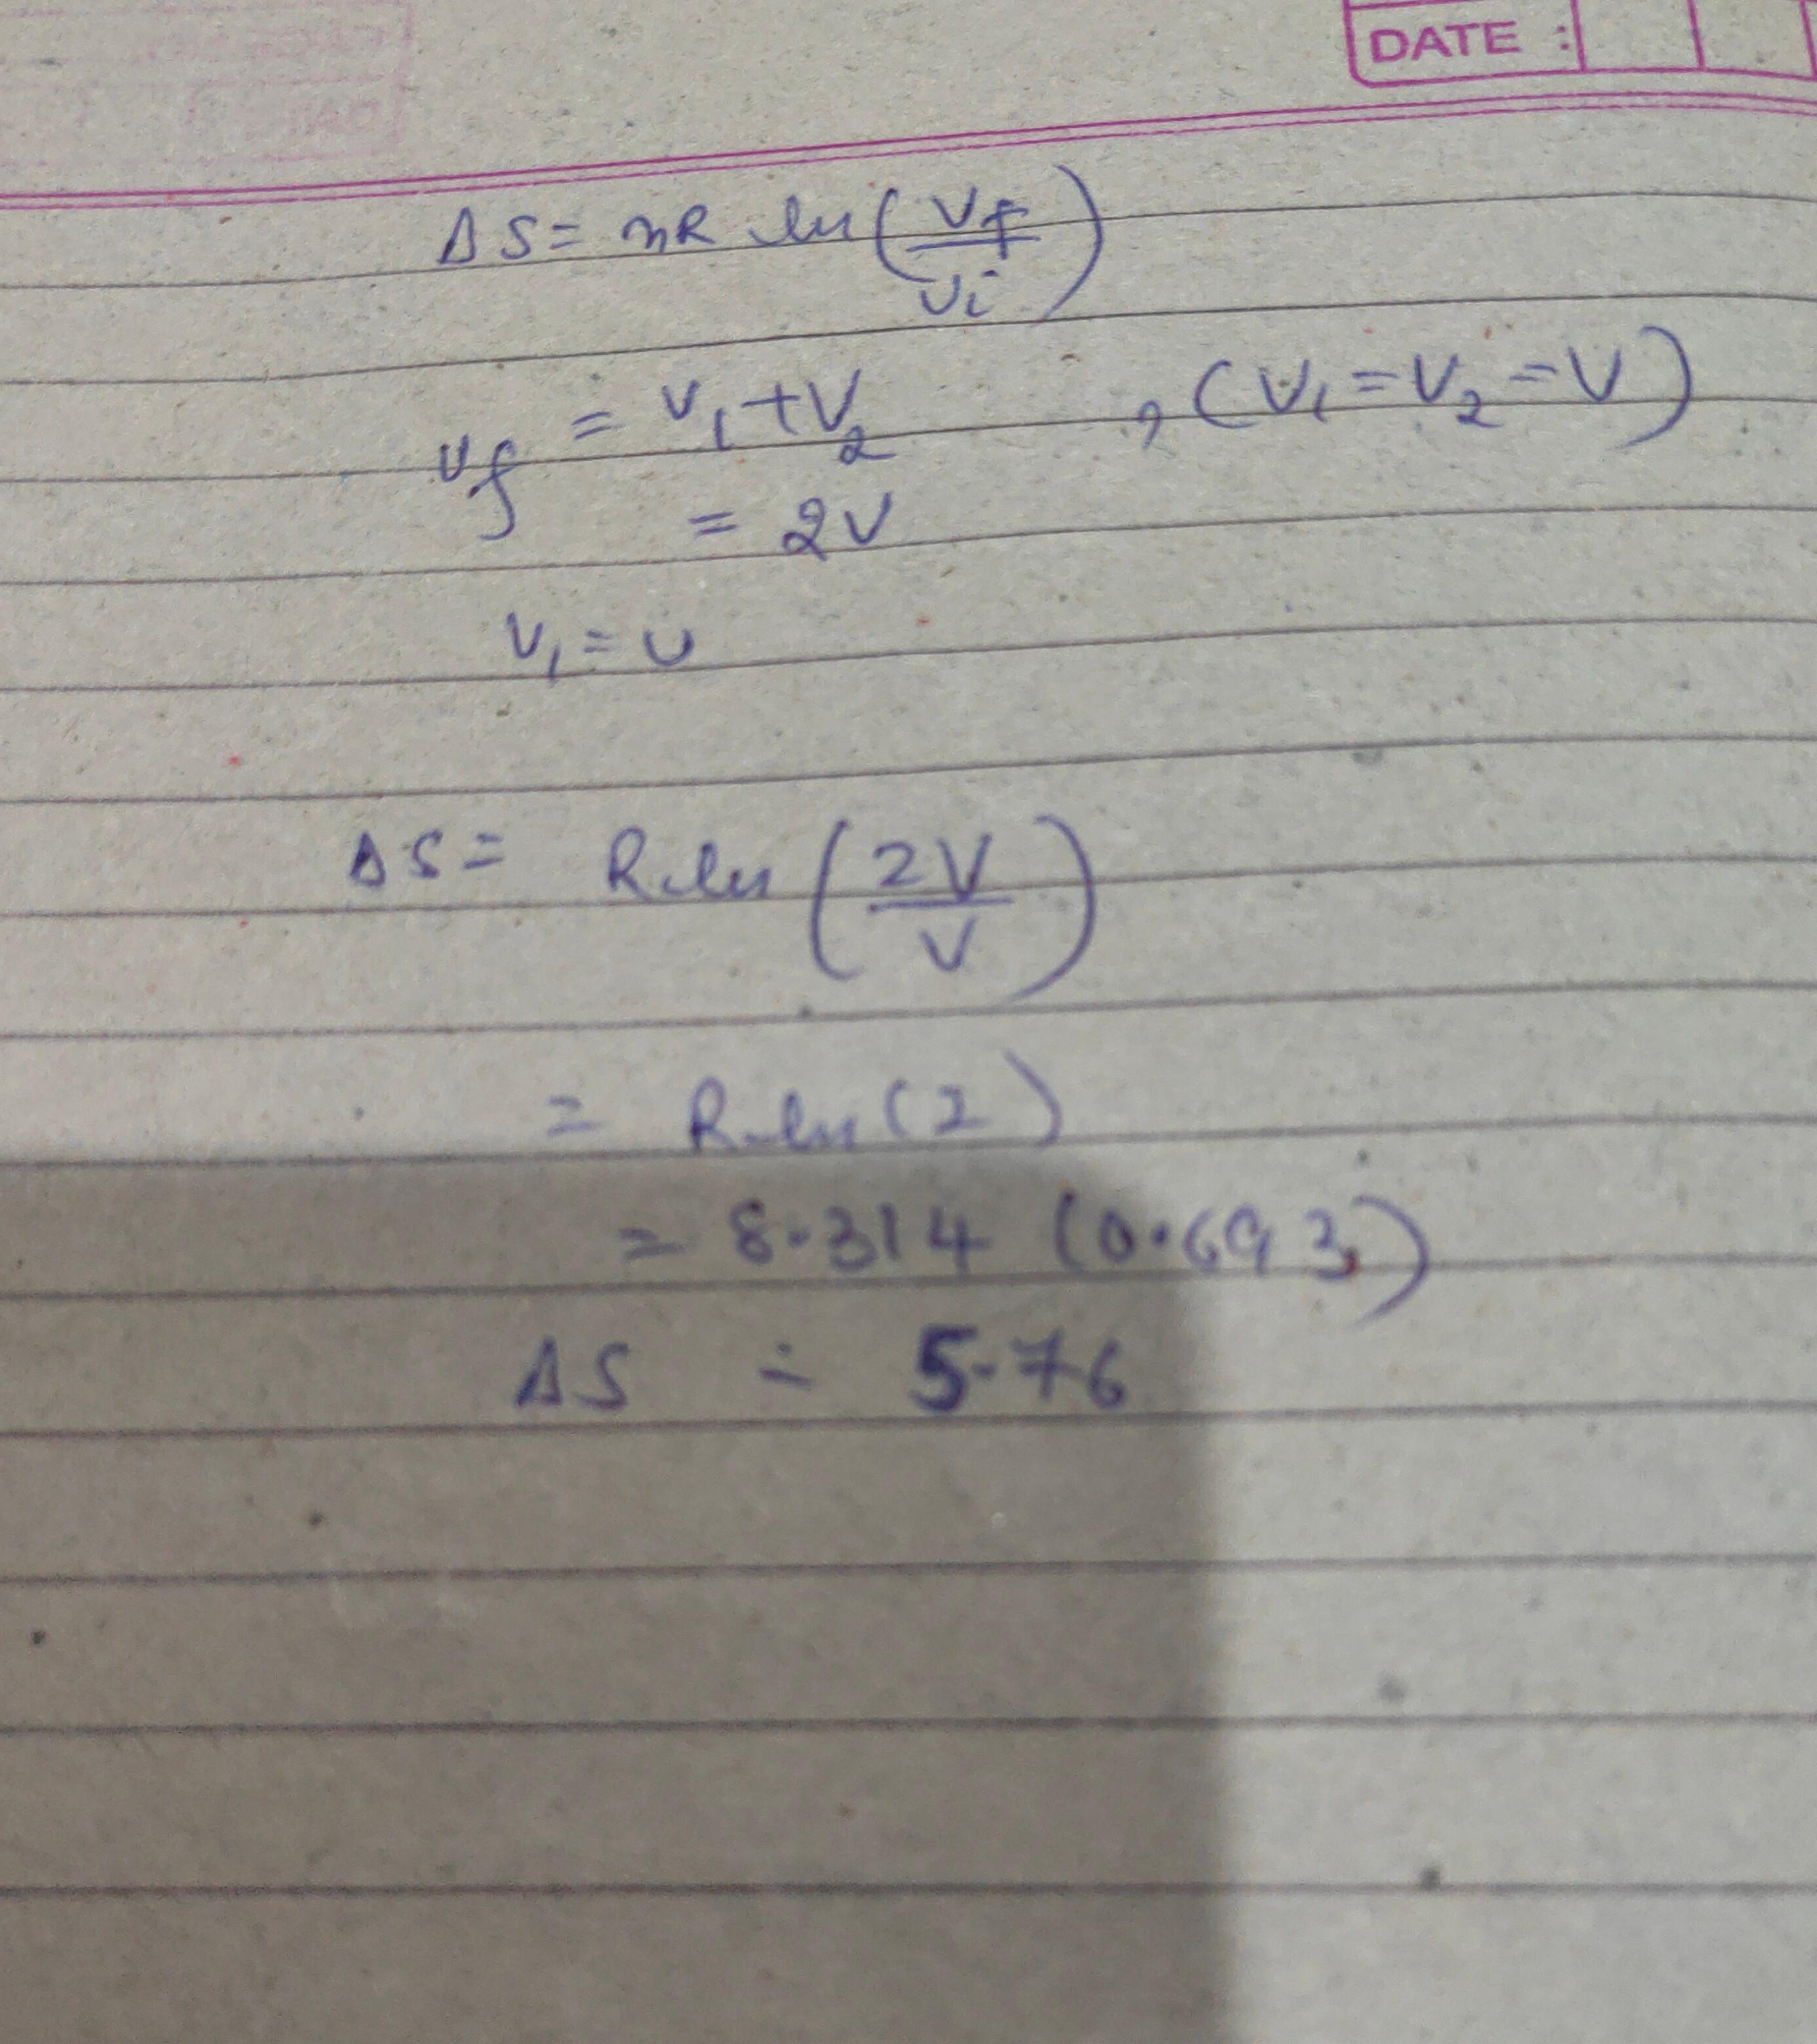 DATE :
ΔS = nR ln (Vf/Vi)
Vf = V₁+V₂ , (V₁=V₂=V)
= 2V
V₁ = V
ΔS = R ln (2V/V)
= R ln (2)
= 8.314 (0.693)
ΔS = 5.76